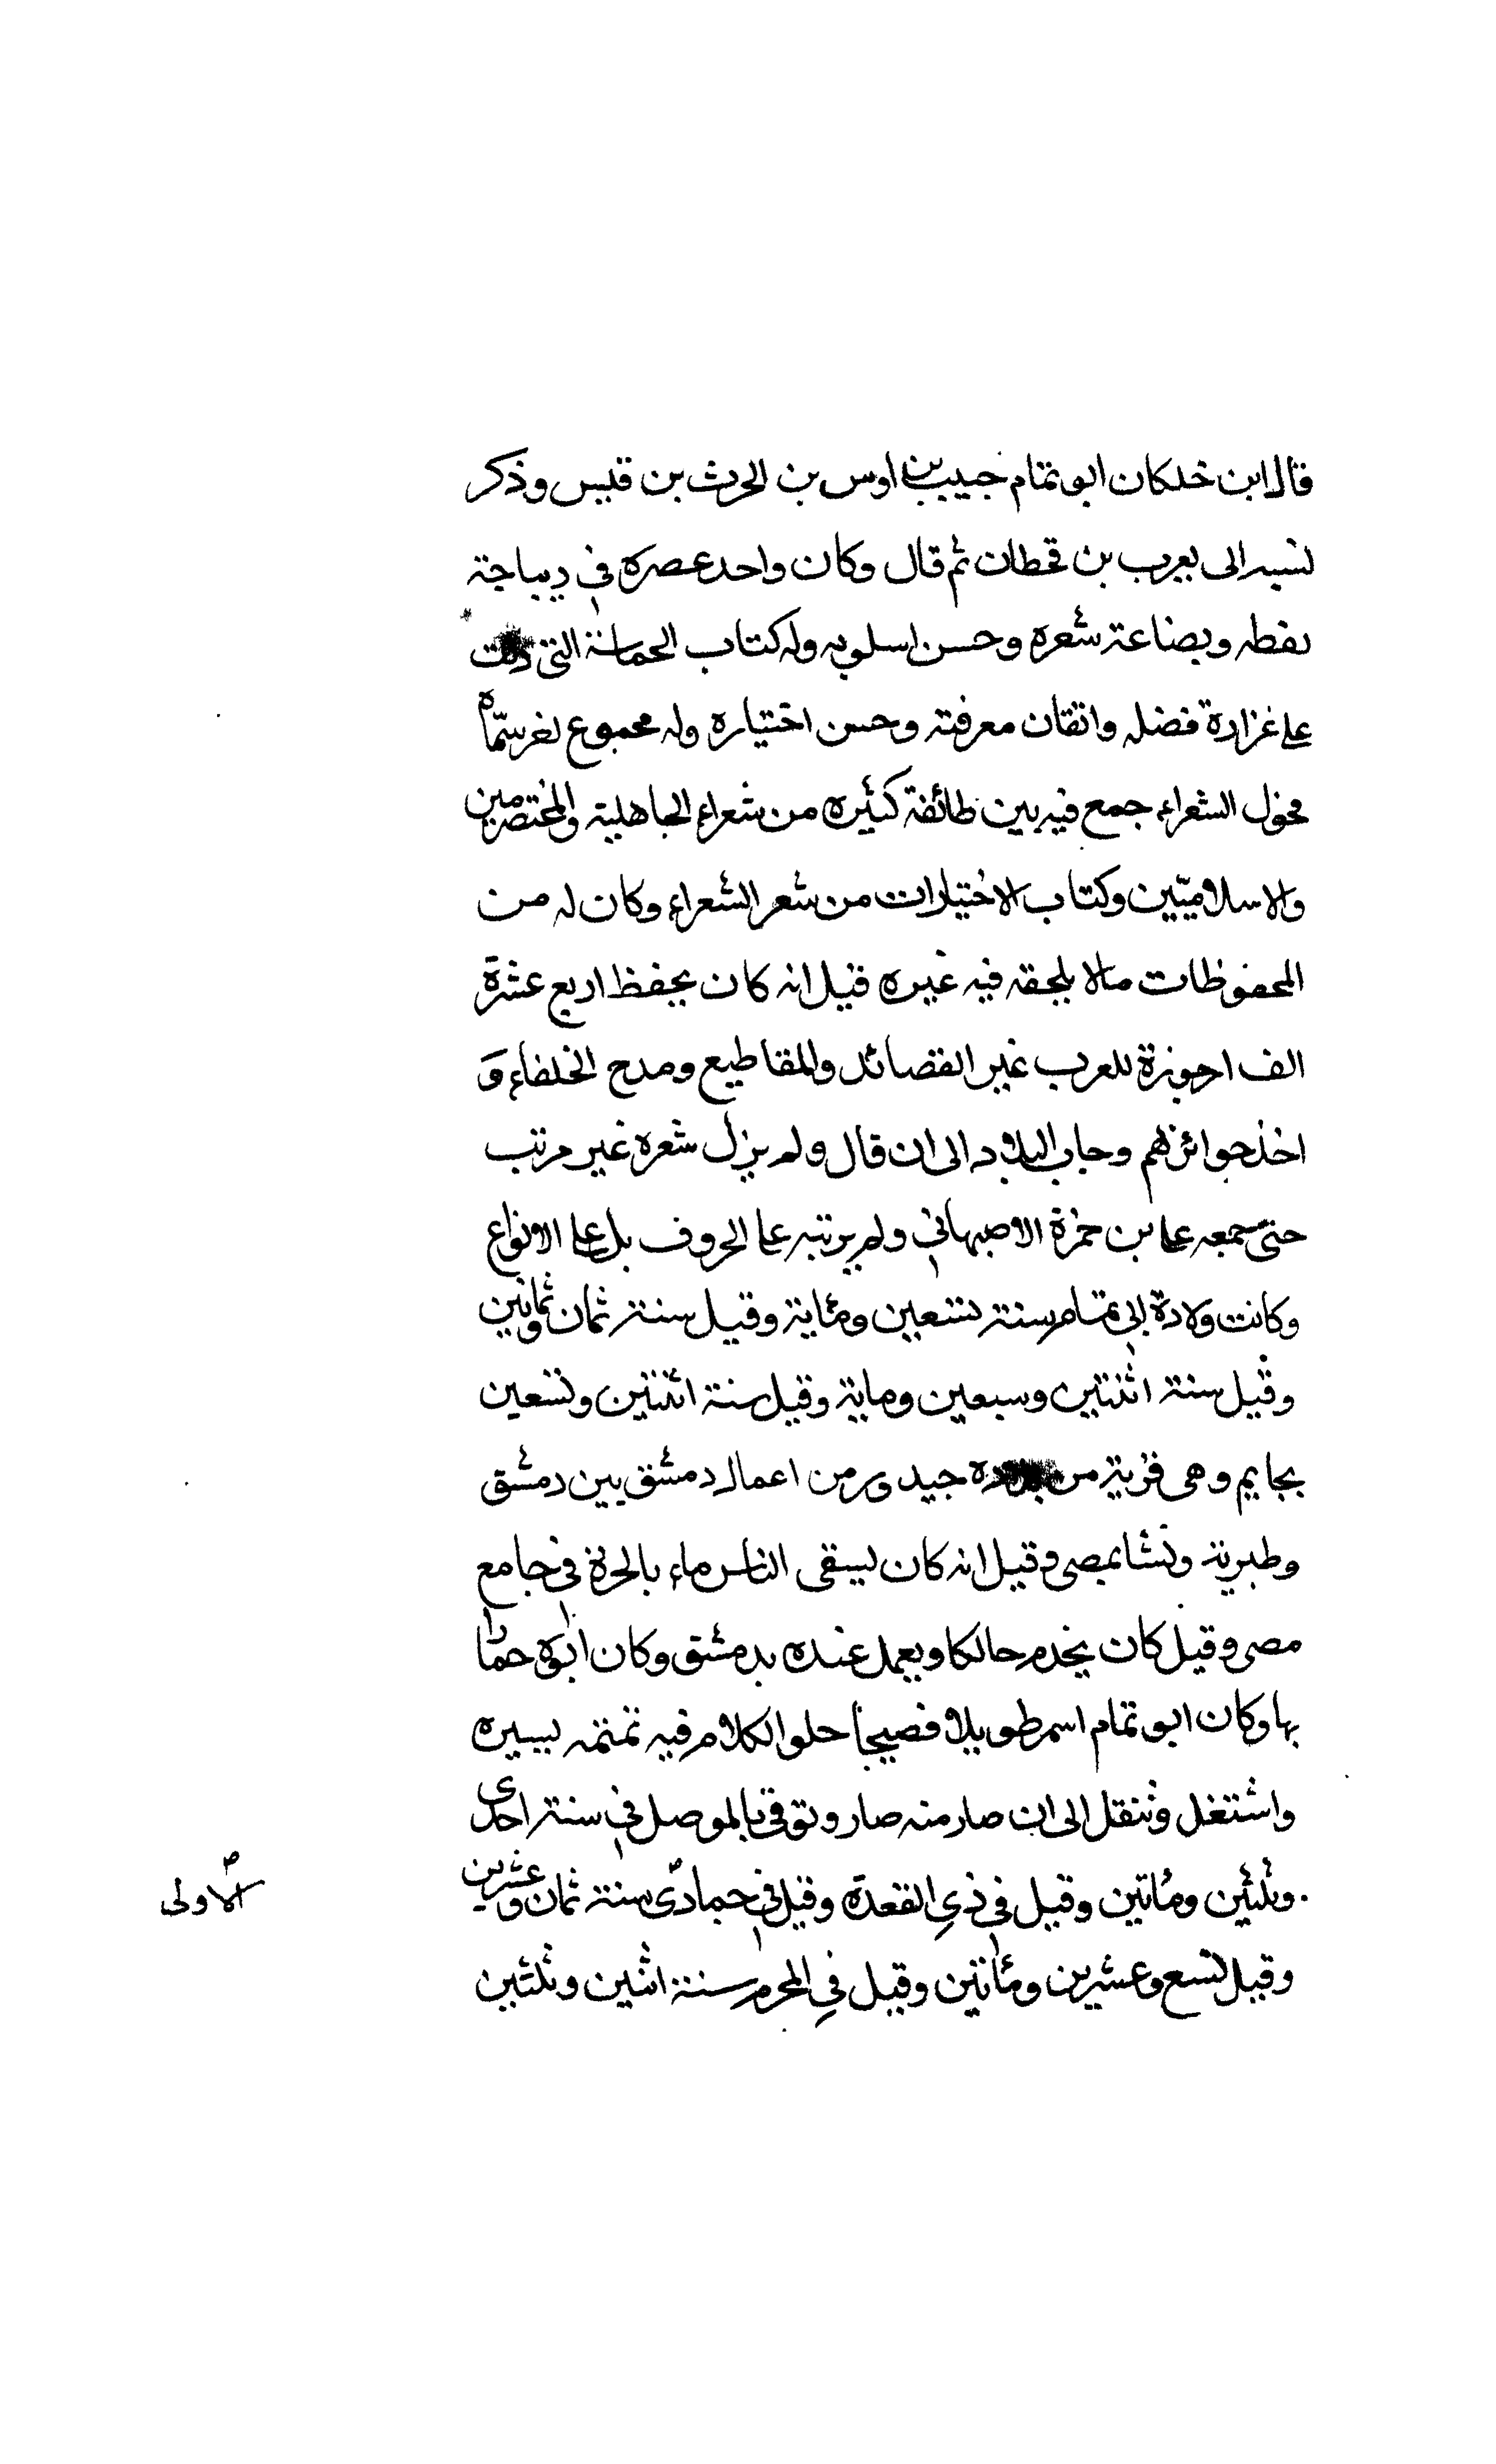 قال ابن خلكان ابو تمام حبيب بن اوس بن الحرث بن قيس وذكر
نسبه الى يعرب بن قحطان ثم قال وكان واحد عصره في ديباجة
لفظه وبضاعة شعره وحسن اسلوبه وله كتاب الحماسة التي دلت
على غزارة فضله واتقان معرفته وحسن اختياره وله مجموع اخر سمّاه
فحول الشعراء جمع فيه بين طائفة كثيره من شعراء الجاهلية والمخضرمين
والاسلاميّين وكتاب الاختيارات من شعر الشعراء وكان له من
المحفوظات مالا يلحقه فيه غيره قيل انه كان يحفظ اربع عشرة
الف ارجوزة للعرب غير القصائد والمقاطيع ومدح الخلفاء و
اخذ جوائزهم وجاب البلاد الى ان قال ولم يزل شعره غير مرتب
حتى جمعه على بن حمزة الاصبهاني ولم يرتبه على الحروف بل على الانواع
وكانت ولادة ابي تمام سنة تسعين ومئاية وقيل سنة ثمان وثمانين
وقيل سنة اثنتين وسبعين وماية وقيل سنة اثنتين وتسعين
بجايم وهى قرية من جيدور من اعمال دمشق بين دمشق
وطبرية ونشا بمصر وقيل انه كان يسقى الناس ماء بالجرة في جامع
مصر وقيل كان يخدم حائكا ويعمل عنده بدمشق وكان ابوه خمّارا
بها وكان ابو تمام اسمر طويلا فصيحا حلو الكلام فيه تمتمه يسيره
واشتغل وتنقل الى ان صار منه صار وتوفي بالموصل في سنة احدى
وثلثين ومئاتين وقيل في ذي القعدة وقيل في جمادى سنة ثمان وعشرين
الاولى
وقيل تسع وعشرين ومئاتين وقيل في المحرم سنة اثنين وثلثين